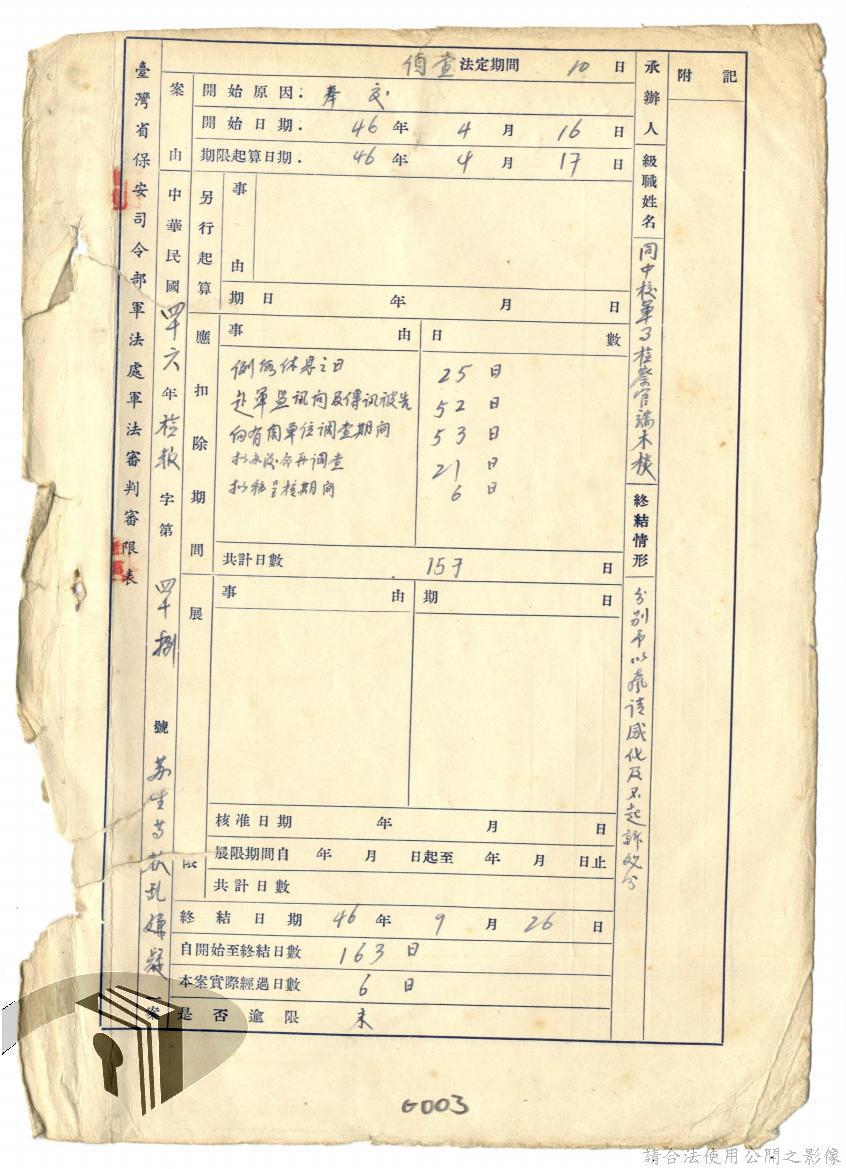 臺灣省保安司令部軍法處軍法審判審限表
案由 中華民國四十六年檢報字第四十捌號蘇生等叛乱嫌疑一案
偵查法定期間 10 日
開始原因. 奉交
開始日期. 46年 4月 16日
期限起算日期. 46年 4月 17日
另行起算
事由
期日 年 月 日
應扣除期間
事由 日數
例假休息之日 25日
赴軍監訊问及傳訊被告 52日
向有関單位調查期间 53日
再調查 21日
拟稿呈核期间 6日
共計日數 157日
展限
事由 期日
核准日期 年 月 日
展限期間自 年 月 日起至 年 月 日止
共計日數
終結日期 46年 9月 26日
自開始至終結日數 163日
本案實際經過日數 6日
是否逾限 未
承辦人級職姓名 同中校軍事檢察官端木棪
終結情形 分別予以聲請感化及不起訴處分
附記
G003
請合法使用公開之影像